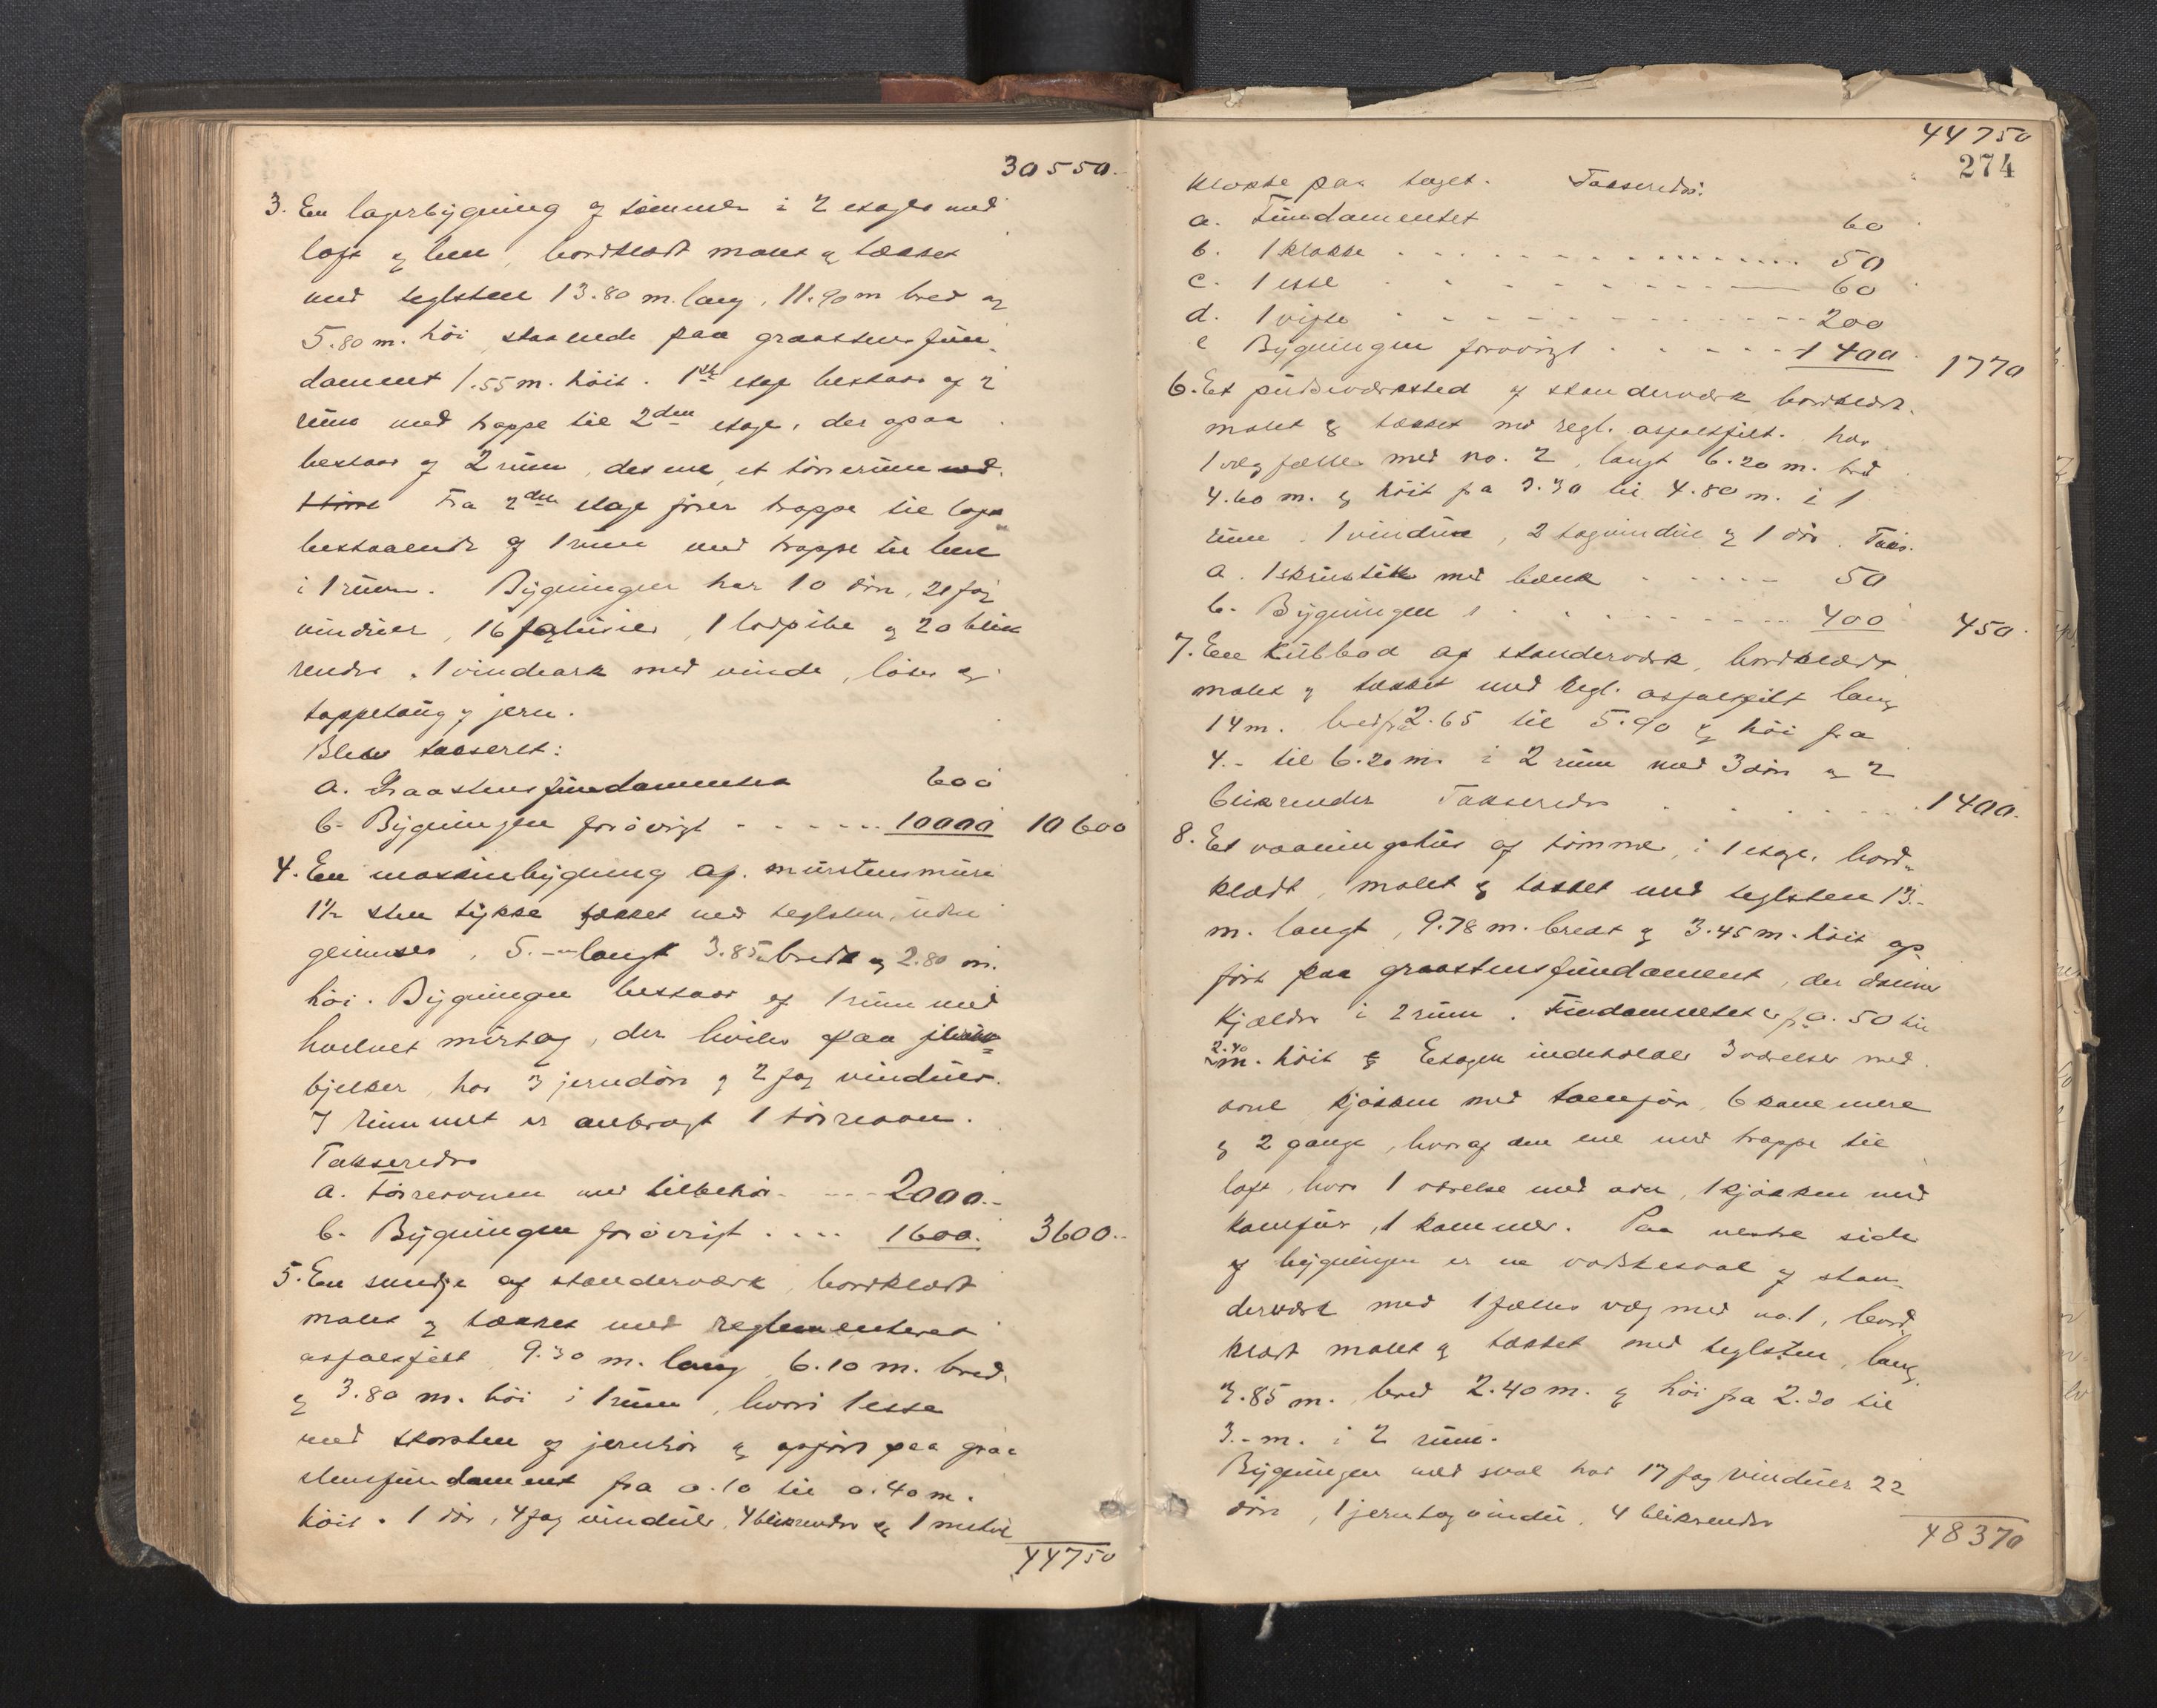 30550.-
3. En lagerbygning af tømmer i 2 etager med
loft og hem, bordklædt malet og tækket
med teglsten 13.80 m. lang, 11.90 m bred og
5.80 m. høi, staaende paa graastensfun-
dament 1.55 m. høit. 1ste etage bestaar af 2
rum med trappe til 2den etage, der ogsaa
bestaar af 2 rum, det ene et tørrerum med
Fra 2den etage fører trappe til loft
bestaaende af 1 rum med trappe til hem
i 1 rum. Bygningen har 10 døre, 21 fag
vinduer, 16 1 lodpibe og 20 blik
render. 1 vindeark med vinde, løst og
tappetaug af jern.
Blev taxeret:
a. Graastensfundamentet 600
b. Bygningen forøvrigt - - - - - - 10000 10600
4. En maskinbygning af murstensmure
1½ sten tykke tækket med teglsten, uden
gesimser, 5.- m langt 3.85 m bredt og 2.80 m.
høi. Bygningen bestaar af 1 rum med
hvelvet murtag, der hviler paa jern-
bjelker, har 3 jerndøre og 2 fag vinduer.
I rummet er anbragt 1 tørreovn.
Takseredes
a. Tørreovnen med tilbehør - - - - 2000.-
b. Bygningen forøvrigt . . . . 1600. 3600.-
5. En smedje af standerværk, bordklædt
malet og tækket med reglementeret
asfaltfilt 9.30 m. lang 6.10 m. bred,
og 3.80 m. høi i 1 rum, hvori 1 esse
med skorsten og jernrør og opført paa graa
stensfundament fra 0.10 til 0.40 m.
høit. 1 dør, 4 fag vinduer, 4 blikrender og 1
44750
44750
274
klokke paa taget. Takseredes:
a. Fundamentet 60
b. 1 klokke . . . . . . . . . 50
c. 1 esse . . . . . . . . 60
d. 1 vifte . . . . . . . . . 200
e Bygningen forøvrigt . . . . . 1400. 1770
6. Et pudseværksted af standerværk bordklædt,
malet og tækket med regl. asfaltfilt. har
1 væg fælles med no. 2, langt 6.20 m. bred
4.60 m. og høit fra 3.30 til 4.80 m. i 1
rum. 1 vindue, 2 tagvindue og 1 dør. Taks.
a. 1 skrustik med bænk . . . . . 50
b. Bygningen . . . . . . . . 400 450.
7. En Kulbod af standerværk, bordklædt
malet og tækket med regl. asfaltfilt lang
14 m. bred fra 2.65 til 5.90 og høi fra
4.- til 6.20 m. i 2 rum med 3 døre og 2
blikrender Takseredes . . . . . . 1400.
8. Et vaaningshus af tømmer, i 1 etage, bord-
klædt, malet og tækket med teglsten 13.-
m. langt, 9.78 m. bredt og 3.45 m. høit op-
ført paa graastensfundament, der danner
Kjælder i 2 rum. Fundamentet er fra 0.50 til
2.40
m. høit og Etagen indeholder 3 værelser med
ovne kjøkken med komfur, 6 kammere
og 2 gange, hvoraf den ene med trappe til
loft, hvor 1 værelse med ovn, 1 kjøkken med
komfur, 1 kammer. Paa vestre side
af bygningen er en vadskesval af stan-
derværk med 1 fælles væg med no. 1, bord-
klædt malet og tækket med teglsten, lang
3.85 m. bred 2.40 m. og høi fra 2.20 til
3.- m. i 2 rum.
Bygningen med sval har 17 fag vinduer 22
døre, 1 jerntagvindu, 4 blikrender
48370